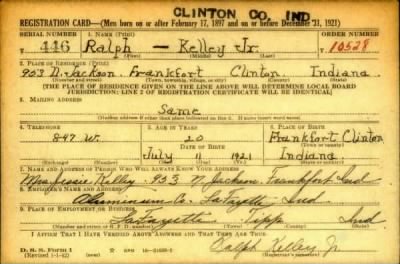 CLINTON CO. IND
REGISTRATION CARD—(Men born on or after February 17, 1897 and on or before December 31, 1921)
SERIAL NUMBER 1. NAME (Print) ORDER NUMBER
446 Ralph — Kelley Jr. 10528
(First) (Middle) (Last)
2. PLACE OF RESIDENCE (Print)
903 N. Jackson, Frankfort Clinton Indiana
(Number and street) (Town, township, village, or city) (County) (State)
[THE PLACE OF RESIDENCE GIVEN ON THE LINE ABOVE WILL DETERMINE LOCAL BOARD
JURISDICTION; LINE 2 OF REGISTRATION CERTIFICATE WILL BE IDENTICAL]
3. MAILING ADDRESS
Same
(Mailing address if other than place indicated on line 2. If same insert word same)
4. TELEPHONE 5. AGE IN YEARS 6. PLACE OF BIRTH
847 W. 20 Frankfort Clinton
DATE OF BIRTH (Town or county)
July 11 1921 Indiana
(Exchange) (Number) (Mo.) (Day) (Yr.) (State or country)
7. NAME AND ADDRESS OF PERSON WHO WILL ALWAYS KNOW YOUR ADDRESS
Mrs. Kelley. 903 N. Jackson, Frankfort Ind
8. EMPLOYER'S NAME AND ADDRESS
Aluminum Co. LaFayette Ind
9. PLACE OF EMPLOYMENT OR BUSINESS
LaFayette Tipp Ind
(Number and street or R. F. D. number) (Town) (County) (State)
I AFFIRM THAT I HAVE VERIFIED ABOVE ANSWERS AND THAT THEY ARE TRUE.
D. S. S. Form 1
(Revised 1-1-42) (over) Ralph Kelley Jr.
(Registrant's signature)